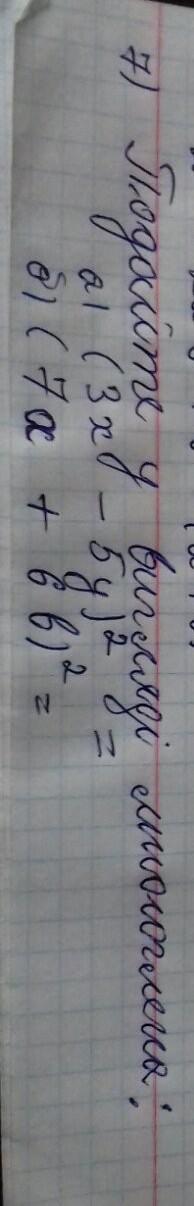 7) Подайте у вигляді многочлена:
а) (3x - 5y)² =
б) (7a + 6b)² =